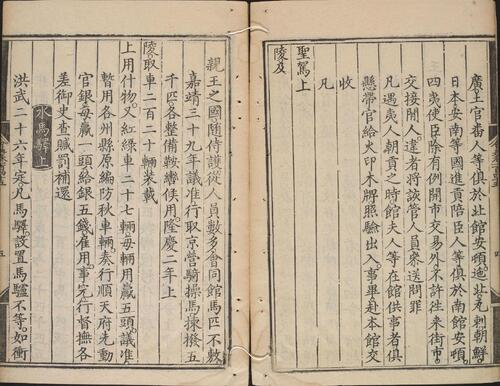 廣王官番人等俱於北館安頓迤北瓦剌朝鮮
日本安南等國進貢陪臣人等俱於南館安頓。
四夷使臣除有例開市交易外不許往來街市。
交接閒人違者將該管人員叅送問罪
凡遇夷人朝貢之時館夫人等在館供事者俱
懸帶官給火印木牌照驗出入事畢赴本館交
收
凡
聖駕上
陵及
親王之國隨侍護從人員數多會同館馬匹不敷
嘉靖三十九年議准行取京營騎操馬揀撥五
千匹各整備鞍轡俟用。隆慶二年上
陵取車二百二十輛裝載
上用什物。又紅綠車二十七輛每輛用驘五頭。議准
暫用各州縣原編防秋車輛奏行順天府先動
官銀每驘一頭給銀五錢雇用。事完行督撫各
差御史查贓罰補還
水馬驛上
洪武二十六年定凡馬驛設置馬驢不等。如衝